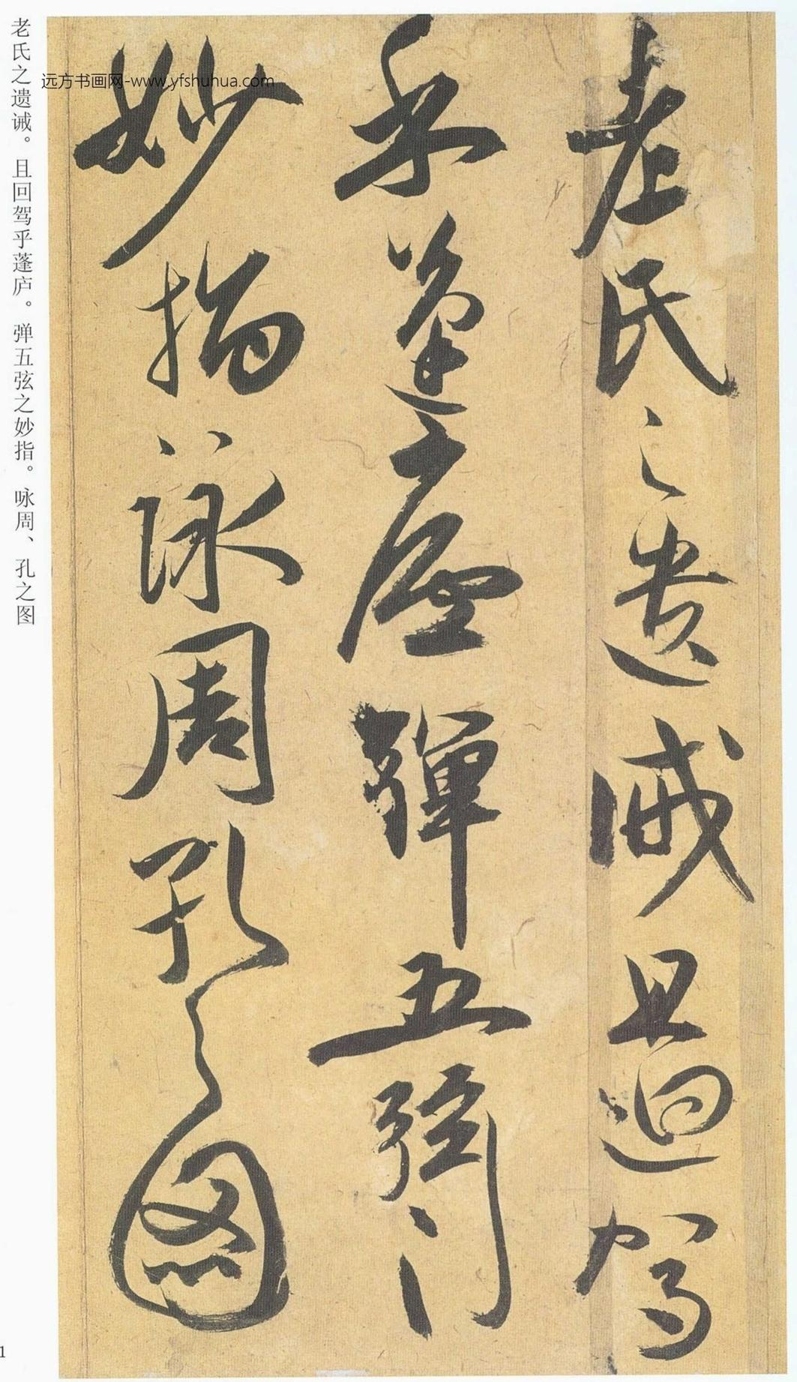 老氏之遺戒且迴駕
乎蓬廬彈五弦
妙指詠周孔之图
老氏之遗诫。且回驾乎蓬庐。弹五弦之妙指。咏周、孔之图
远方书画网-www.yfshuhua.com
1